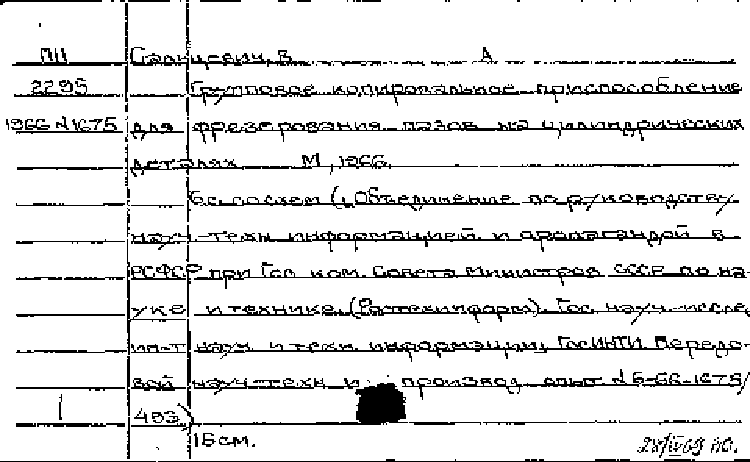 ПН Станкевич, В А
2295 Групповое копировальное приспособление
1966 N1675 для фрезерования пазов на цилиндрических
деталях М, 1966.
6с. со схем (Объединение по руководству
науч.-техн информацией и пропагандой в
РСФСР при Гос ком. Совета Министров СССР по на-
уке и технике. (Ростехинформ). Гос. науч.-иссле
ин-т науч и техн. информации. ГосИНТИ. Передо-
вой науч-техн и производ опыт N 6-66-1675/
493)
15 см.